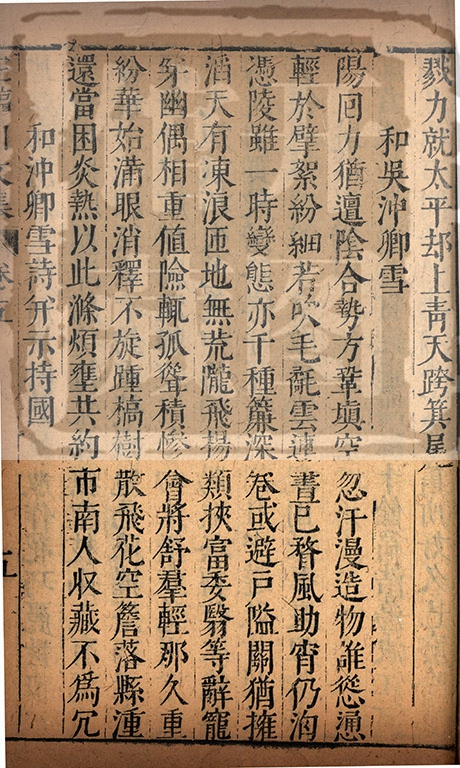 毅力就太平却上青天跨箕尾
和吳沖卿雪
陽回力猶邅陰合勢方鞏填空忽汗漫造物誰慫慂
輕於擘絮紛細若吹毛氄雲連晝已瞀風助宵仍洶
憑陵雖一時變態亦千種簾深卷或避戸隘關猶擁
滔天有凍浪匝地無荒隴飛揚類挾富委翳等辭寵
穿幽偶相重值險輒孤聳積慘會將舒羣輕那久重
紛華始滿眼消釋不旋踵槁樹散飛花空簷落縣湩
還當困炎熱以此滌煩壅共約市南人收藏不爲冗
和沖卿雪詩并示持國
川文集 卷五 五